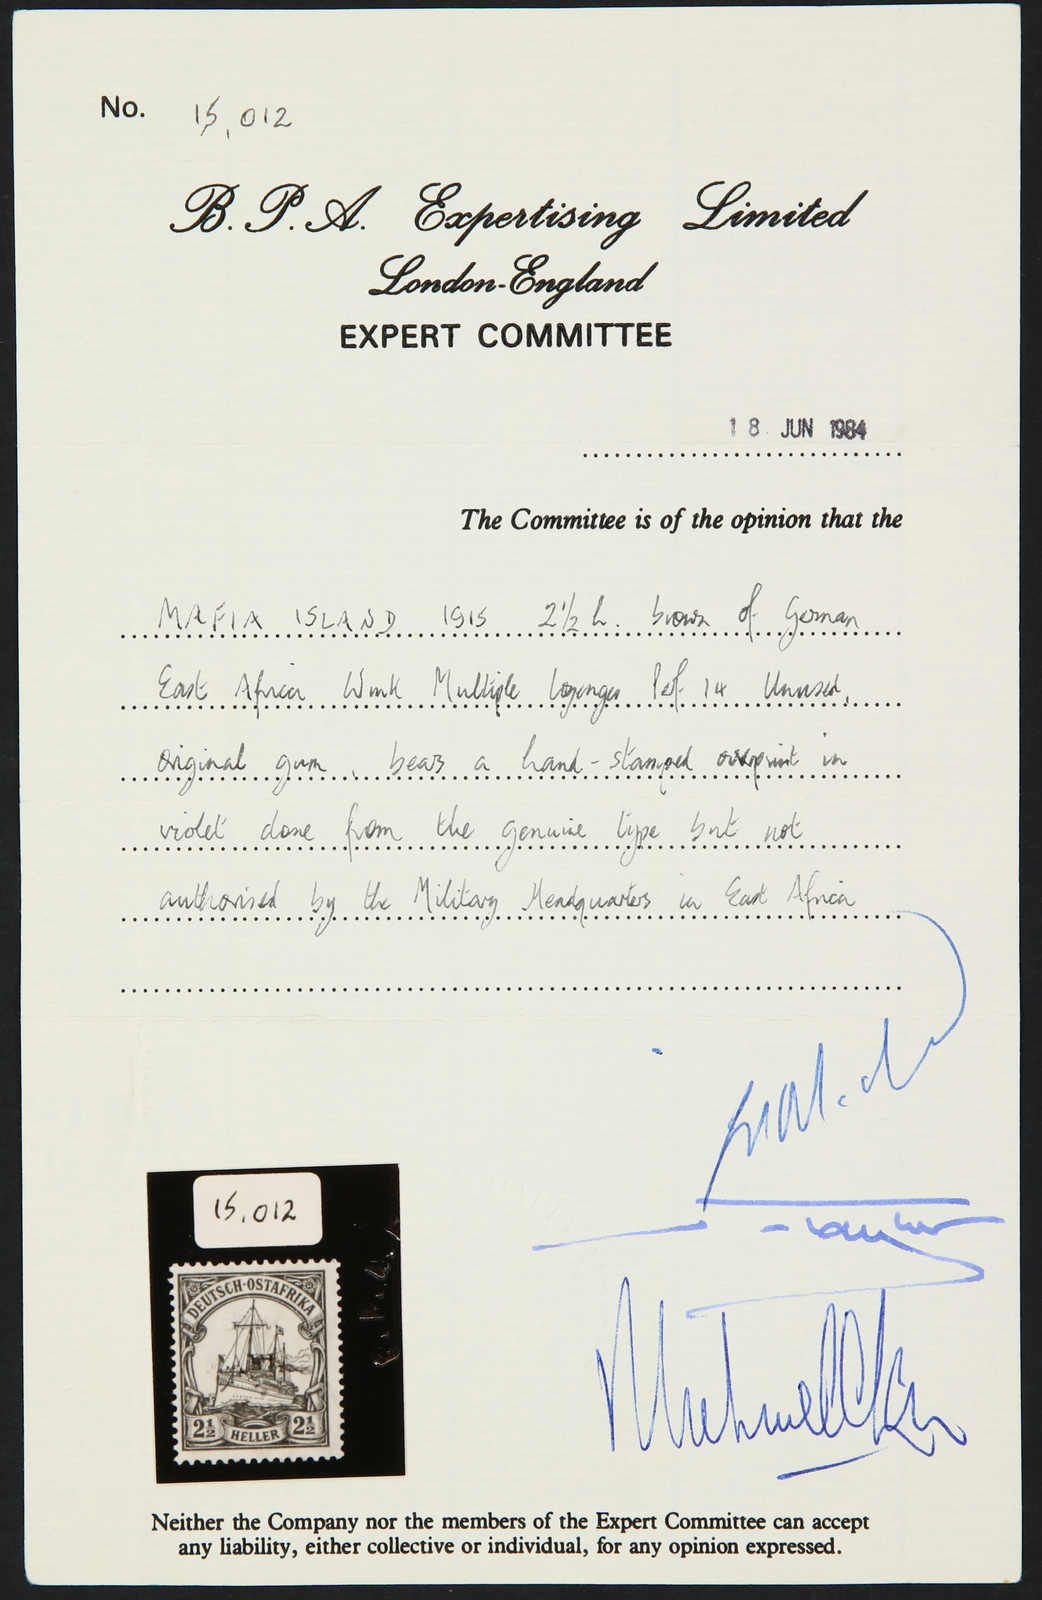 No. 15,012
B. P. A. Expertising Limited
London-England
EXPERT COMMITTEE
18 JUN 1984
The Committee is of the opinion that the
MAFIA ISLAND 1915 2½ h. brown of German
East Africa Wmk Multiple lozenges Perf. 14 Unused,
original gum, bears a hand-stamped overprint in
violet done from the genuine type but not
authorised by the Military Headquarters in East Africa
15,012
DEUTSCH-OSTAFRIKA
2½ HELLER 2½
Neither the Company nor the members of the Expert Committee can accept
any liability, either collective or individual, for any opinion expressed.